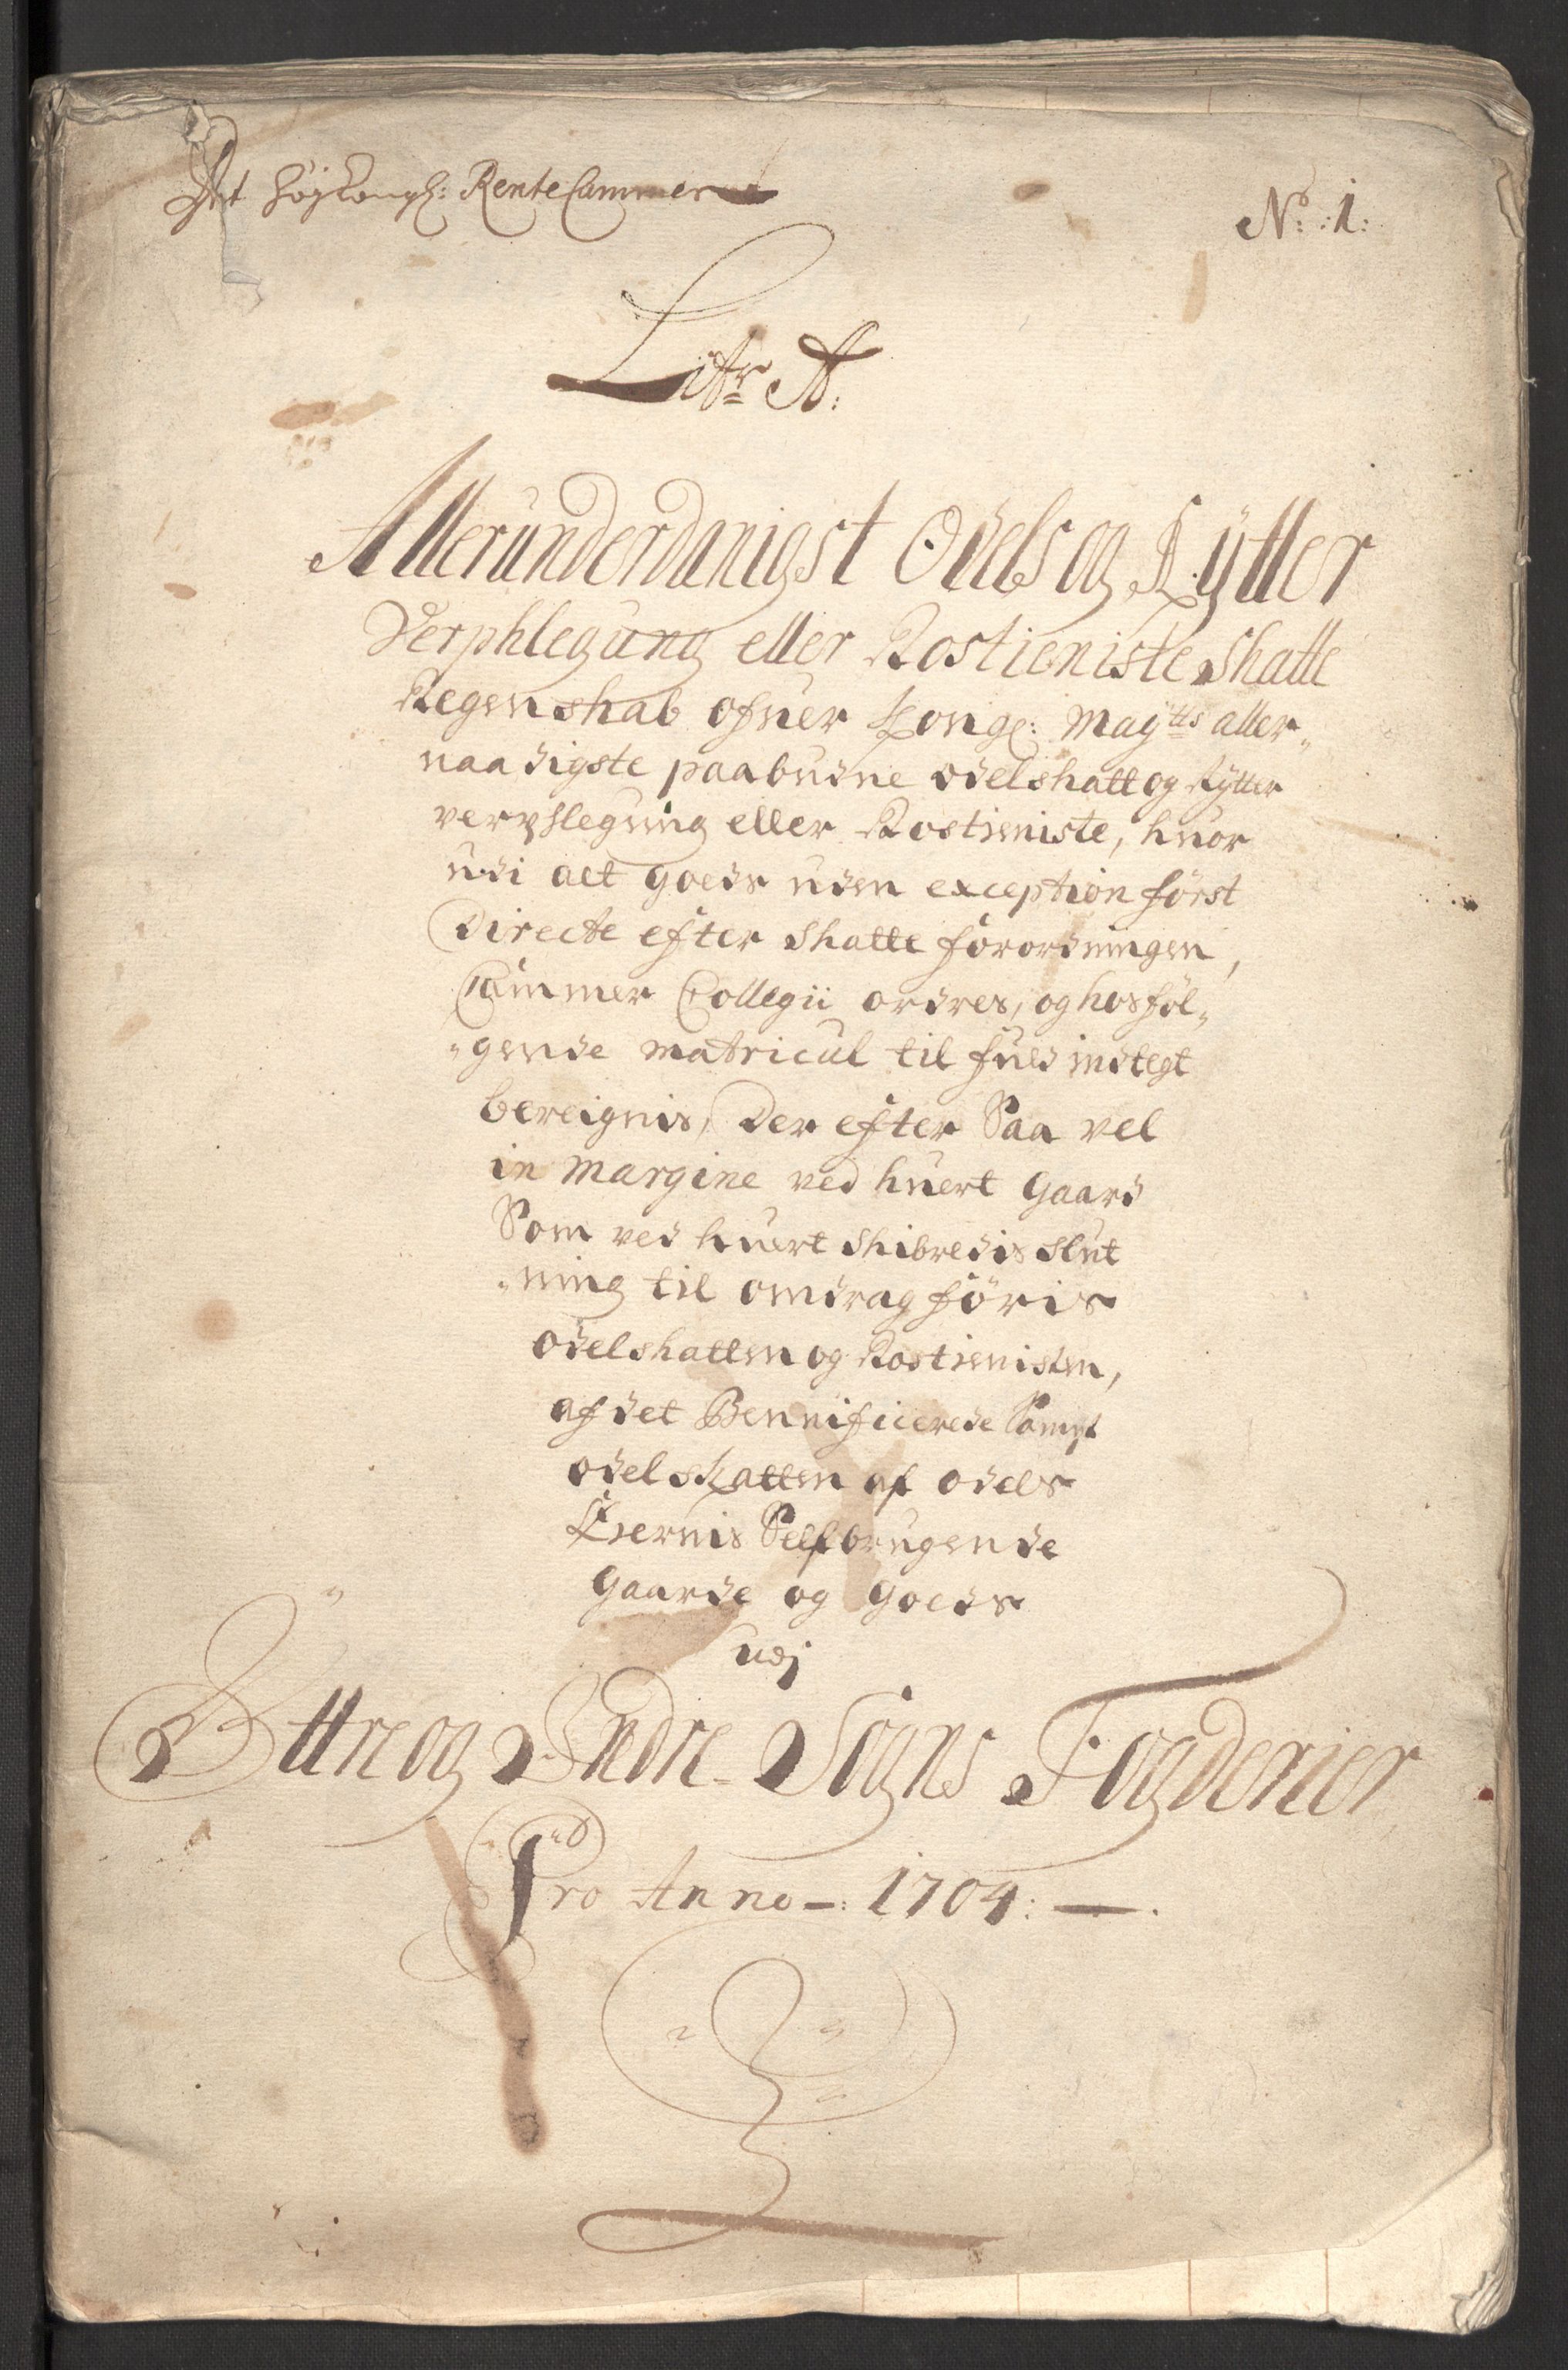 Det høyKongl: RenteCammer
No: :1:
Litr A:
Allerunderdanigst Odels og Rytter
Verphlegung eller Rostieniste Skatte
Regenskab ofuer Kongl: Maytts aller„
naadigste paabudne odelskatt og Rytter
verpflegung eller Rostieniste, huor
udi alt goeds uden exception först
Directe efter Skatte förordningen,
Cammer Collegii ordres, og hosföl„
„gende matricul til fuld indtegt
bereignis, Der efter Saa vel
in margine ved huert Gaard
Som ved huert Skibredis slut
„ning til omdrag föris
odelskatten og Rostienisten,
af det Beneificerede Sampt
odelskatten af odels
Eiernis Self brugende
Gaarde og Goeds
udj
Yttre og Indre Sogns Fogderier
Pro Anno -: 1704: —.